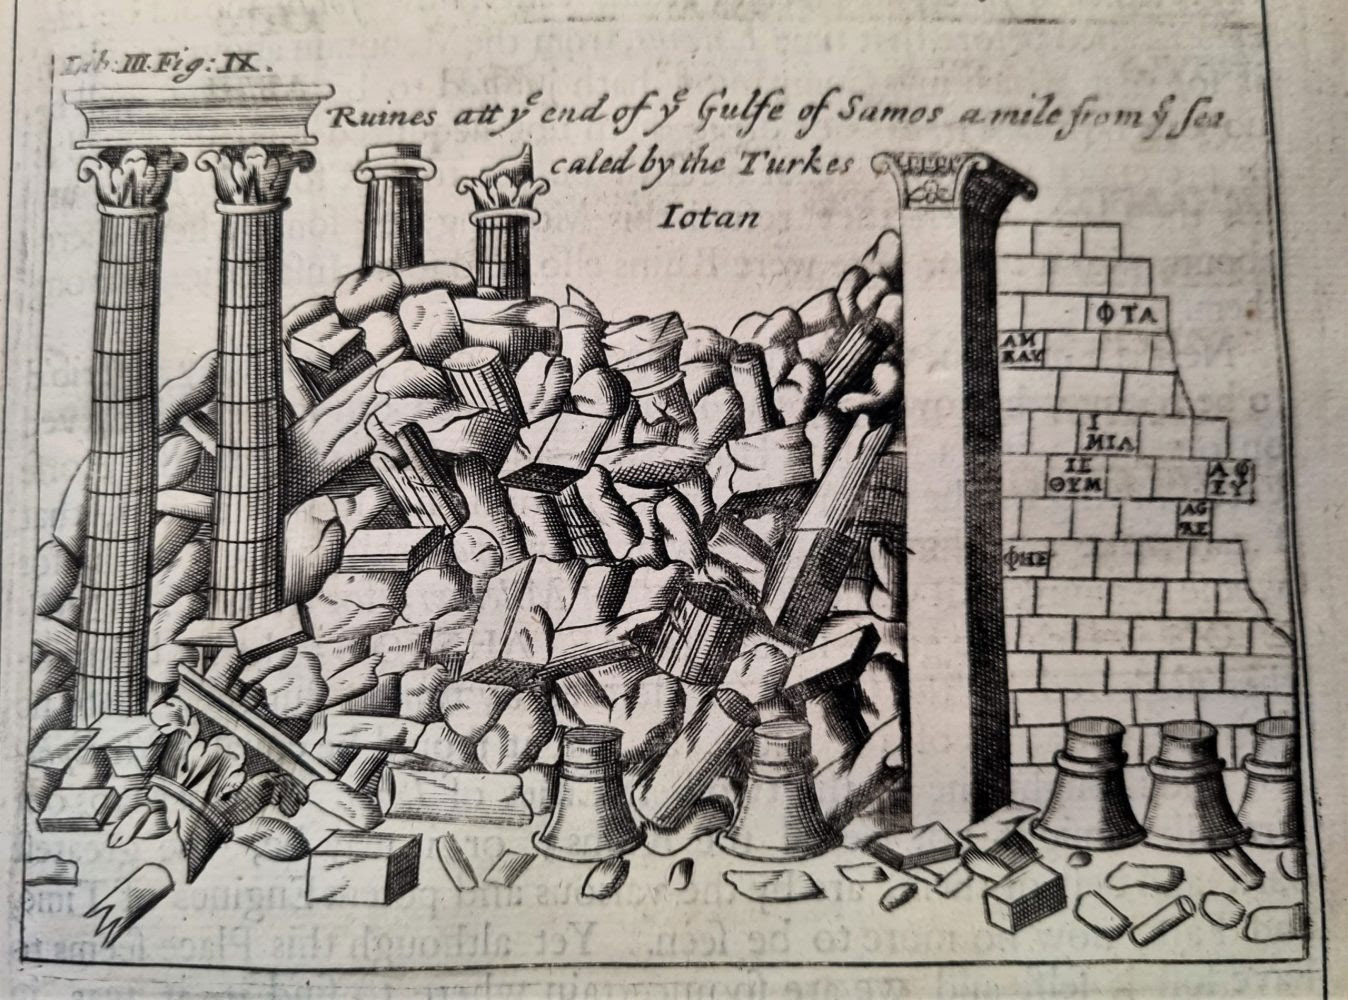 Lib: III. Fig: IX.
Ruines att yᵉ end of yᵉ Gulfe of Samos a mile from yᵉ sea
caled by the Turkes
Iotan
ΦΤΑ
ΑΜ
ΚΑΥ
Ι
ΜΙΑ
ΙΕ
ΘΥΜ
ΦΗΕ